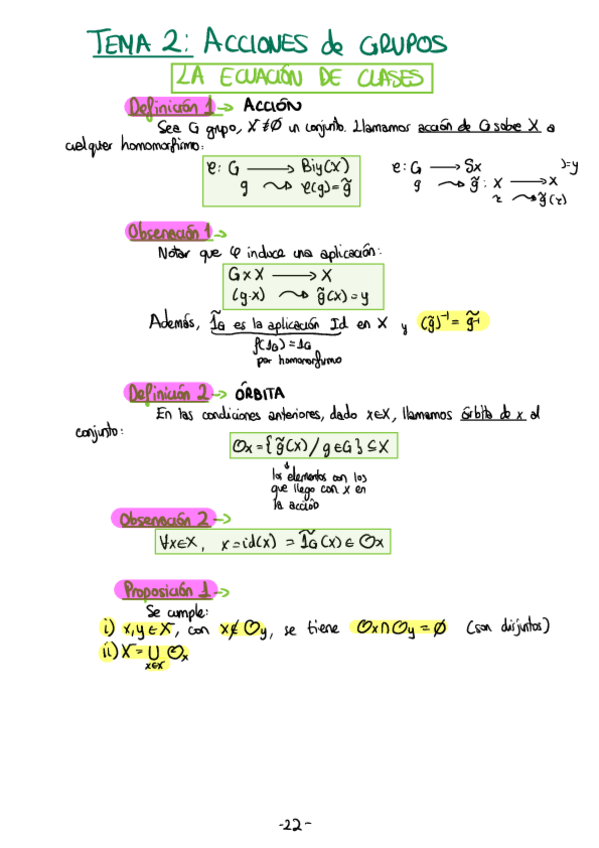 TEMA 2: ACCIONES de GRUPOS
LA ECUACIÓN DE CLASES
Definición 1 → ACCIÓN
Sea G grupo, X≠∅ un conjunto. Llamamos acción de G sobre X a
cualquier homomorfismo:
φ: G ⟶ Biy(X)
g ⤳ φ(g)=g̃
φ: G ⟶ Sx )=y
g ⤳ g̃ : X ⟶ X
x ⤳ g̃(x)
Observación 1 →
Notar que φ induce una aplicación:
G×X ⟶ X
(g·x) ⤳ g̃(x)=y
Además, 1̃_G es la aplicación Id en X y (g̃)⁻¹ = g̃⁻¹
f(1_G)=1_G
por homomorfismo
Definición 2 → ÓRBITA
En las condiciones anteriores, dado x∈X, llamamos órbita de x al
conjunto:
Ox={g̃(x) / g∈G}⊆X
↓
los elementos con los
que llego con x en
la acción
Observación 2 →
∀x∈X, x=id(x) = 1̃_G(x)∈Ox
Proposición 1 →
Se cumple:
i) x,y∈X, con x∉Oy, se tiene Ox∩Oy=∅ (son disjuntos)
ii) X=∪ Ox
x∈X
-22-